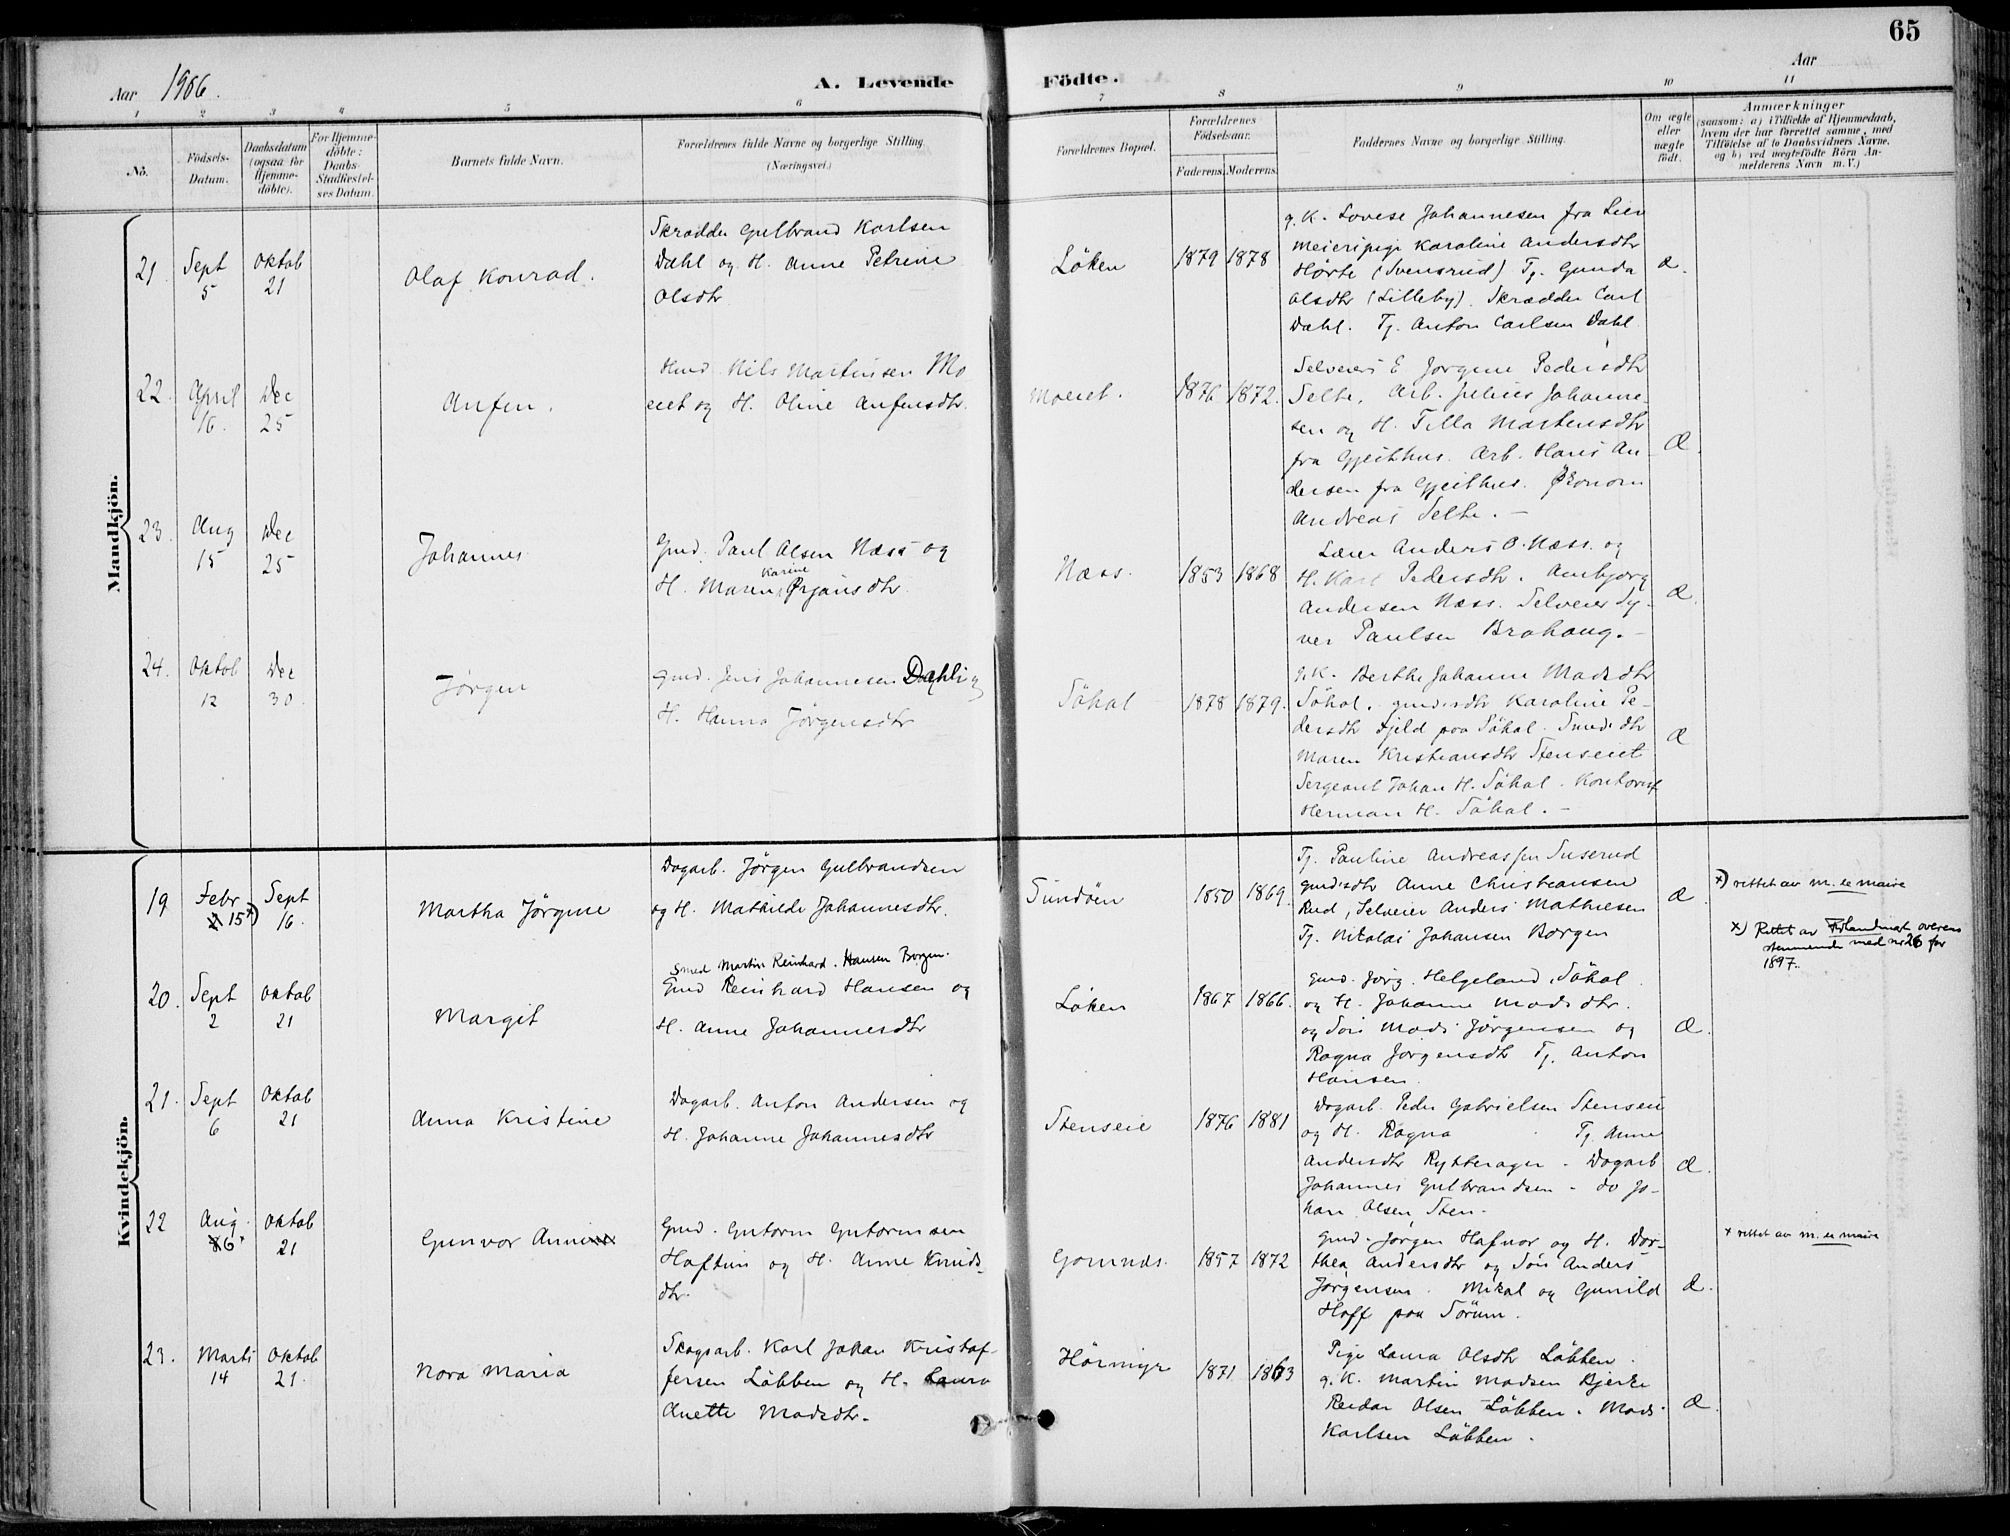 65
Aar 1906.
A. Levende Födte.
Aar
1 2 3 4 5 6 7 8 9 10 11
No.
Födsels-Datum.
Daabsdatum (ogsaa for Hjemme-döbte).
For Hjemme-döbte: Daabs-Stadfæstel-ses Datum.
Barnets fulde Navn.
Forældrenes fulde Navne og borgerlige Stilling.
(Næringsvei.)
Forældrenes Bopæl.
Forældrenes Födselsaar.
Faderens. Moderens.
Faddernes Navne og borgerlige Stilling.
Om ægte eller uægte födt.
Anmærkninger
(saasom: a) i Tilfælde af Hjemmedaab, hvem der har forrettet samme, med Tilföielse af to Daabsvidners Navne, og b) ved uægtefödte Börn An-melderens Navn m. V.)
Mandkjön.
21. Sept 5 Oktob 21
Olaf Konrad.
Skrædder Gulbrand Karlsen
Dahl og H. Anne Petrine
Olsdtr
Löken 1879 1878
g. K. Lovise Johannesen fra Lien
Meieripige Karoline Andersdtr
Hörte (Svensrud) Tj. Gunda
Olsdtr (Lilleby). Skrædder Carl
Dahl. Tj. Anton Carlsen Dahl
Æ.
22. April 16. Dec 25
Anfen.
Hmd. Nils Martinsen Mo
eiet og H. Oline Anfensdtr.
Moeiet. 1876 1872.
Selveiers E Jørgine Pedersdtr
Selte, Arb. Julius Johanne
sen og H. Tilla Martensdtr
fra Gjeithus. Arb. Hans An
dersen fra Gjeithus. Økonom
Andreas Selte. -
Æ.
23. Aug 15 Dec 25
Johannes
Gmd. Paul Olsen Næss og
H. Maren Karine Ørjansdtr.
Næss. 1853 1868
Lærer Anders O. Næss. og
H. Kari Pedersdtr. Ambjørg
Andersen Næss. Selveier Sy-
ver Paulsen Brahaug. -
Æ.
24. Oktob 12 Dec 30
Jørgen
Gmd. Jens Johannesen Dæhli og
H. Hanna Jørgensdtr
Söhol 1878 1879.
g. K. Berthe Johanne Madsdtr
Söhol. gmdsdtr Karoline Pe-
dersdtr Fjeld paa Söhol.
Maren Kristiansdtr Stenseiet
Sergeant Johan H. Söhol. Kontorist
Herman H. Söhol. -
Æ
Kvindekjön.
19 Febr 15 x) Sept 16.
Martha Jörgine
Dagarb. Jörgen Gulbrandsen
og H. Mathilde Johannesdtr.
Sundöen 1850 1869.
Tj. Pauline Andreassen Suserud
gmdsdtr Anne Christiansen
Rud, Selveier Anders Mathiesen
Tj. Nikolai Johansen Borgen
Æ.
x) rettet av m. ie maire
x) Rettet av overens
stemmende med nr 26 for
1897.
20. Sept 2 Oktob 21
Margit
Smed Martin Reinhard. Hansen Borgen.
Gmd Reinhard Hansen og
H. Anne Johannesdtr
Löken 1867 1866.
Gmd. Jörg. Helgeland, Söhol
og H. Johanne Madsdtr.
og Sön Mads Jörgensen og
Ragna Jørgensdtr Tj. Anton
Hansen.
Æ.
21. Sept 6 Oktob 21
Anna Kristine
Dagarb. Anton Andersen og
H. Johanne Johannesdtr
Stenseie 1876 1881
Dagarb. Peder Gabrielsen Stensei
og H. Ragna Tj. Anne
Andersdtr Rytterager. Dagarb
Johannes Gulbrandsen - do Jo-
han Olsen Sten.
Æ.
22 Aug. 6 x Oktob 21
Gunvor Anni
Gmd. Gutorm Gutormsen
Haftun og H. Anne Knuds-
dtr.
Gomnæs. 1857 1872
Gmd. Jørgen Hafnor og H. Dor-
thea Andersdtr og Sön Anders
Jørgensen. Mikal og Gunild
Hoff paa Sörum.
Æ.
x rettet av m. ie maire
23. Marts 14 Oktob 21.
Nora Maria
Skogsarb. Karl Johan Kristof-
fersen Löbben og H. Laura
Anette Madsdtr.
Hörmyr 1871 1863
Pige Laura Olsdtr Löbben.
g. K. Martin Madsen Bjerke
Reidar Olsen Löbben. Mads
Karlsen Löbben.
Æ.